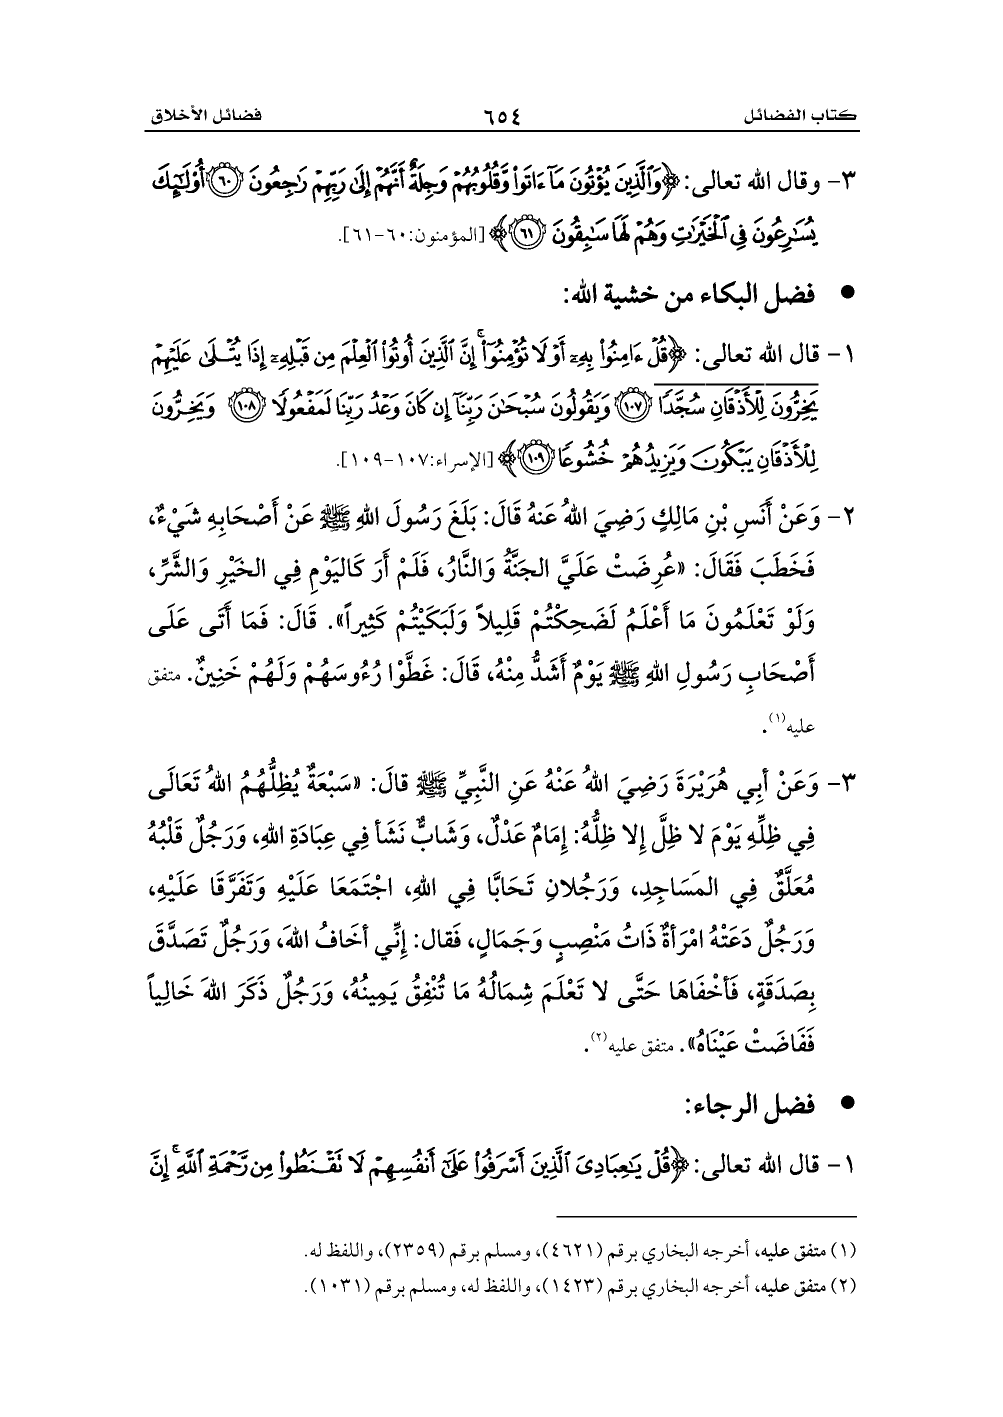 كتاب الفضائل ٦٥٤ فضائل الأخلاق
٣- وقال الله تعالى: ﴿وَٱلَّذِينَ يُؤۡتُونَ مَآ ءَاتَواْ وَّقُلُوبُهُمۡ وَجِلَةٌ أَنَّهُمۡ إِلَىٰ رَبِّهِمۡ رَٰجِعُونَ ٦٠ أُوْلَٰٓئِكَ
يُسَٰرِعُونَ فِي ٱلۡخَيۡرَٰتِ وَهُمۡ لَهَا سَٰبِقُونَ ٦١﴾ [المؤمنون:٦٠-٦١].
● فضل البكاء من خشية الله:
١- قال الله تعالى: ﴿قُلۡ ءَامِنُواْ بِهِۦٓ أَوۡ لَا تُؤۡمِنُوٓاْۚ إِنَّ ٱلَّذِينَ أُوتُواْ ٱلۡعِلۡمَ مِن قَبۡلِهِۦٓ إِذَا يُتۡلَىٰ عَلَيۡهِمۡ
يَخِرُّونَ لِلۡأَذۡقَانِ سُجَّدٗا ١٠٧ وَيَقُولُونَ سُبۡحَٰنَ رَبِّنَآ إِن كَانَ وَعۡدُ رَبِّنَا لَمَفۡعُولٗا ١٠٨ وَيَخِرُّونَ
لِلۡأَذۡقَانِ يَبۡكُونَ وَيَزِيدُهُمۡ خُشُوعٗا ١٠٩﴾ [الإسراء:١٠٧-١٠٩].
٢- وَعَنْ أَنَسِ بْنِ مَالِكٍ رَضِيَ اللهُ عَنهُ قَالَ: بَلَغَ رَسُولَ اللهِ ﷺ عَنْ أَصْحَابِهِ شَيْءٌ،
فَخَطَبَ فَقَالَ: «عُرِضَتْ عَلَيَّ الجَنَّةُ وَالنَّارُ، فَلَمْ أَرَ كَاليَوْمِ فِي الخَيْرِ وَالشَّرِّ،
وَلَوْ تَعْلَمُونَ مَا أَعْلَمُ لَضَحِكْتُمْ قَلِيلاً وَلَبَكَيْتُمْ كَثِيراً». قَالَ: فَمَا أَتَى عَلَى
أَصْحَابِ رَسُولِ اللهِ ﷺ يَوْمٌ أَشَدُّ مِنْهُ، قَالَ: غَطَّوْا رُءُوسَهُمْ وَلَهُمْ خَنِينٌ. متفق
عليه(١).
٣- وَعَنْ أبِي هُرَيْرَةَ رَضِيَ اللهُ عَنْهُ عَنِ النَّبِيِّ ﷺ قالَ: «سَبْعَةٌ يُظِلُّهُمُ اللهُ تَعَالَى
فِي ظِلِّهِ يَوْمَ لا ظِلَّ إِلا ظِلُّهُ: إِمَامٌ عَدْلٌ، وَشَابٌّ نَشَأ فِي عِبَادَةِ اللهِ، وَرَجُلٌ قَلْبُهُ
مُعَلَّقٌ فِي المَسَاجِدِ، وَرَجُلانِ تَحَابَّا فِي اللهِ، اجْتَمَعَا عَلَيْهِ وَتَفَرَّقَا عَلَيْهِ،
وَرَجُلٌ دَعَتْهُ امْرَأةٌ ذَاتُ مَنْصِبٍ وَجَمَالٍ، فَقال: إِنِّي أخَافُ اللهَ، وَرَجُلٌ تَصَدَّقَ
بِصَدَقَةٍ، فَأخْفَاهَا حَتَّى لا تَعْلَمَ شِمَالُهُ مَا تُنْفِقُ يَمِينُهُ، وَرَجُلٌ ذَكَرَ اللهَ خَالِياً
فَفَاضَتْ عَيْنَاهُ». متفق عليه(٢).
● فضل الرجاء:
١- قال الله تعالى: ﴿قُلۡ يَٰعِبَادِيَ ٱلَّذِينَ أَسۡرَفُواْ عَلَىٰٓ أَنفُسِهِمۡ لَا تَقۡنَطُواْ مِن رَّحۡمَةِ ٱللَّهِۚ إِنَّ
(١) متفق عليه، أخرجه البخاري برقم (٤٦٢١)، ومسلم برقم (٢٣٥٩)، واللفظ له.
(٢) متفق عليه، أخرجه البخاري برقم (١٤٢٣)، واللفظ له، ومسلم برقم (١٠٣١).